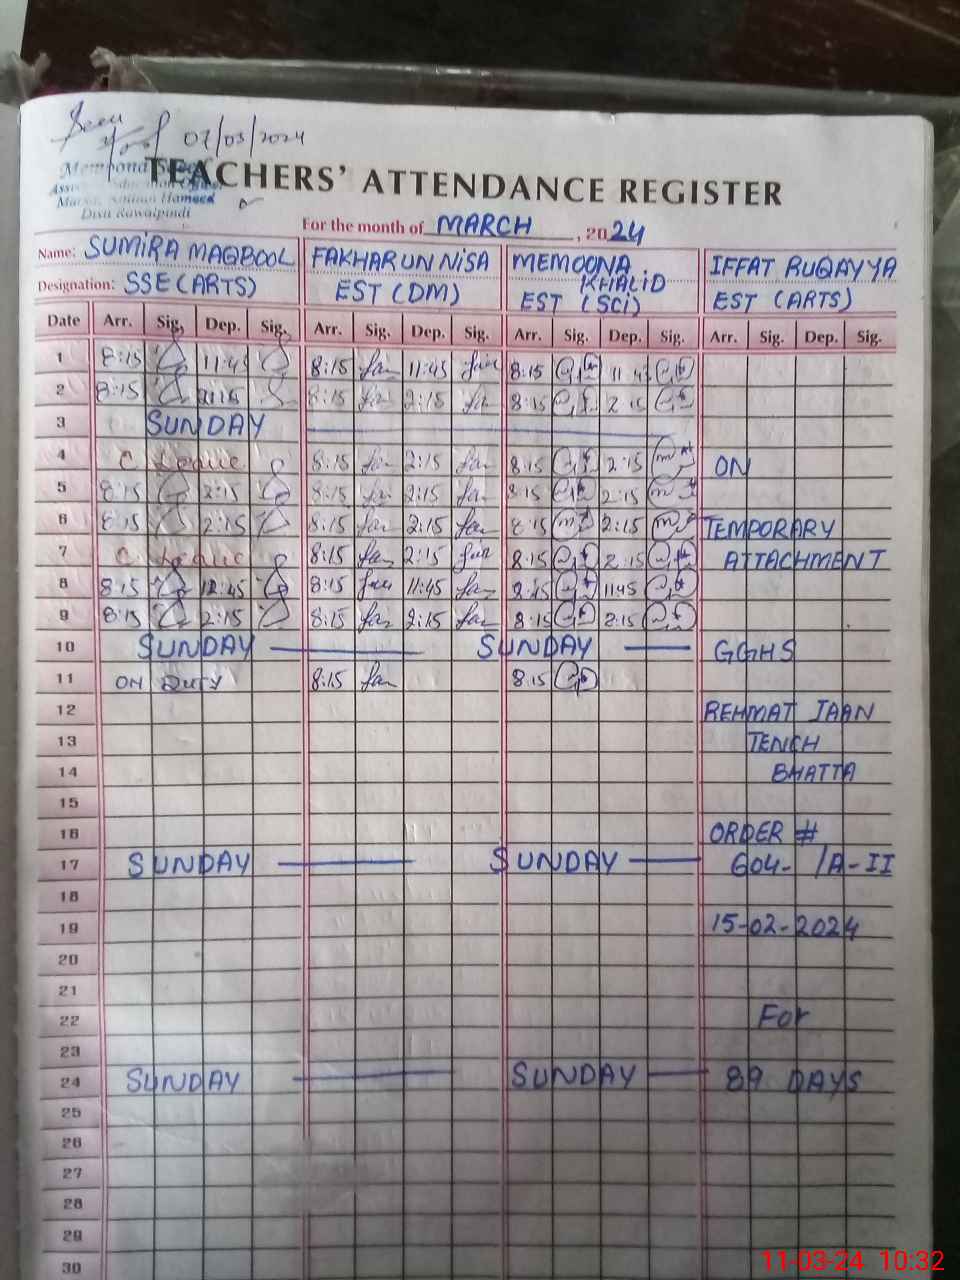 Seen
07/03/2024
TEACHERS' ATTENDANCE REGISTER
Disti Rawalpindi
For the month of MARCH, 2024
Name: SUMIRA MAQBOOL FAKHARUN NISA MEMOONA KHALID IFFAT RUQAYYA
Designation: SSE (ARTS) EST (DM) EST (SCi) EST (ARTS)
Date Arr. Sig. Dep. Sig. Arr. Sig. Dep. Sig. Arr. Sig. Dep. Sig. Arr. Sig. Dep. Sig.
1 8:15 11:45 8:15 11:45 8:15 11:45
2 8:15 2:15 8:15 2:15 8:15 2:15
3 SUNDAY
4 C. Leave 8:15 2:15 8:15 2:15 ON
5 8:15 2:15 8:15 2:15 8:15 2:15
6 8:15 2:15 8:15 2:15 8:15 2:15 TEMPORARY
7 C. Leave 8:15 2:15 8:15 2:15 ATTACHMENT
8 8:15 12:45 8:15 11:45 8:15 11:45
9 8:15 2:15 8:15 2:15 8:15 2:15
10 SUNDAY SUNDAY GGHS
11 ON DUTY 8:15 8:15
12 REHMAT JAAN
13 TENCH
14 BHATTA
15
16 ORDER #
17 SUNDAY SUNDAY 604- /A-II
18
19 15-02-2024
20
21
22 For
23
24 SUNDAY SUNDAY 89 DAYS
25
26
27
28
29
30
11-03-24 10:32